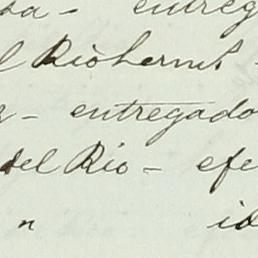 sa - entreg
l Riohermh -
r - entregado
del Rio - efe
" id